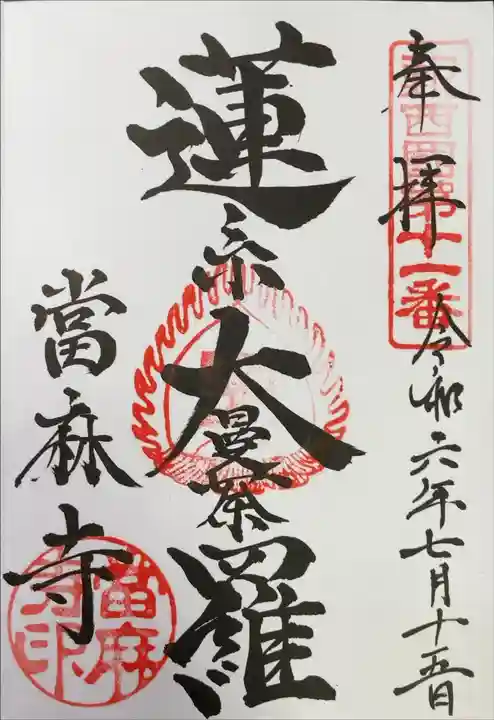 奉拝
西国第十一番
令和六年七月十五日
蓮糸大曼荼羅
當麻寺